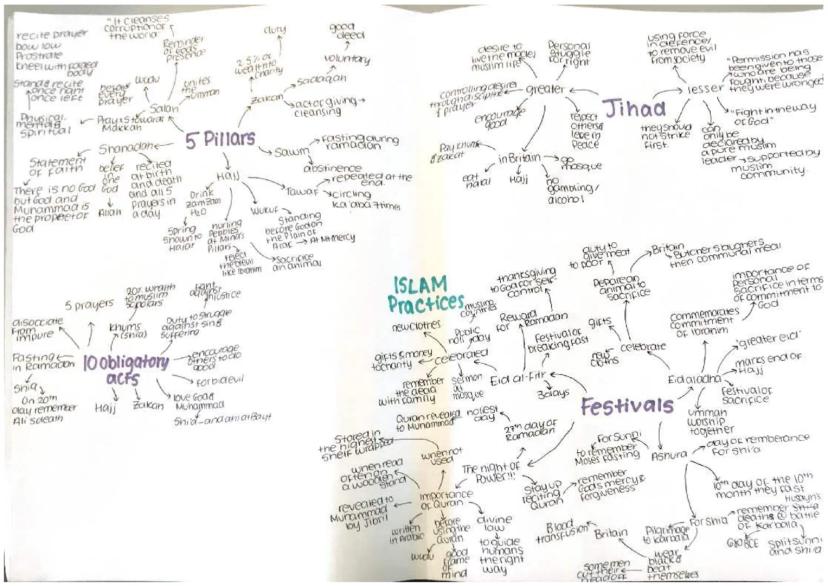 recite prayer
bow low
Prostrate
kneel with folded
body
Stand & recite
once right
once left
"It cleanses
corruption of
the world"
Reminder
of God's
presence
before
prayer
Wudu
unites
the
ummah
Salah
Physical
mental &
spiritual
Pray 5 towards
Makkah
Shahadah
Statement
of Faith
There is no God
but God and
Muhammad is
the prophet of
God
belief
in
one
God
Allah
recited
at birth
and death
and all 5
prayers in
a day
5 Pillars
2.5% of
wealth to
charity
duty
good
deed
voluntary
Sadaqah
Zakah
act of giving
cleansing
Sawm
Fasting during
ramadan
abstinence
Hajj
Tawaf
repeated at the
end.
circling
Ka'aba 7 times
Drink
zamzam
H2O
Spring
shown to
hurling
Pebbles
at Mina's
Pillars
reject
the devil
like Ibrahim
Wukuf
Standing
before God on
the Plain of
Sacrifice
an animal
Jihad
greater
desire to
live the model
muslim life
Personal
struggle
for right
controlling desires
through discipline
of prayer
encourage
good
respect
others &
live in
peace
in Britain
Pay khums
& zakat
eat
halal
Hajj
go
mosque
no
gambling/
alcohol
lesser
using force
in defence/
to remove evil
from society
"Permission has
been given to those
who are being
fought, because
they were wronged"
"Fight in the way
of God"
they should
not strike
first
can
only be
declared by
a pure muslim
leader
supported by
muslim
community.
10 obligatory
acts
5 prayers
disociate
from
impure
20% wealth
to muslim
scholars
Khums
(shia)
fight
against
injustice
duty to struggle
against sin &
suffering
encourage
others to do
good
forbid evil
love God &
Muhammad
Zakah
Hajj
Fasting
in Ramadan
Shia
On 20th
day remember
Ali's death
ISLAM
Practices
Festivals
Eid al-Fitr
new clothes
gifts & money
to charity
celebrated
muslim
countries
Public
holiday
remember
the dead
with family
sermon
at
mosque
Reward
for
Ramadan
thanksgiving
to God for self-
control
Festival of
breaking fast
3 days
Eid al adha
celebrate
gifts
new
cloths
Prepare an
animal to
sacrifice
duty to
give meat
to poor
Britain
Butcher slaughters
then communal meal
commemorates
commitment
of Ibrahim
importance of
personal
sacrifice in terms
of commitment to
God
"greater eid"
marks end of
Hajj
Festival of
sacrifice
ummah
worship
together
The night of
Power!!!
Quran revealed
to Muhammad
holiest
day
27th day of
Ramadan
Stay up
reciting
Quran
remember
God's mercy &
forgiveness
Importance
of Quran
when not
used
Stored in
the highest
shelf wrapped
when read
often on a
wooden
stand
revealed to
Muhammad
by Jibril
written
in Arabic
before
using the
Quran
Wudu
good
frame
of
mind
divine
law
to guide
humans
the right
way
Ashura
For Sunni
to remember
Moses fasting
day of rememberance
for shi'a
10th day of the 10th
month they fast
For Shia
remember
Husayn's
death & battle
of Karbala
split Sunni
and shi'a
Pilgrimage
to Karbala
wear
black &
beat
themselves
some men
Britain
Blood
transfusion